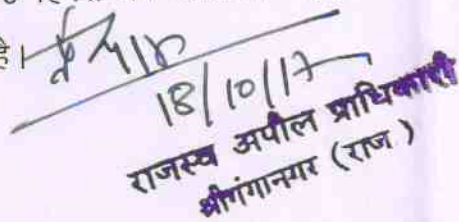 है।
18/10/17
राजस्व अपील प्राधिकारी
श्रीगंगानगर (राज )